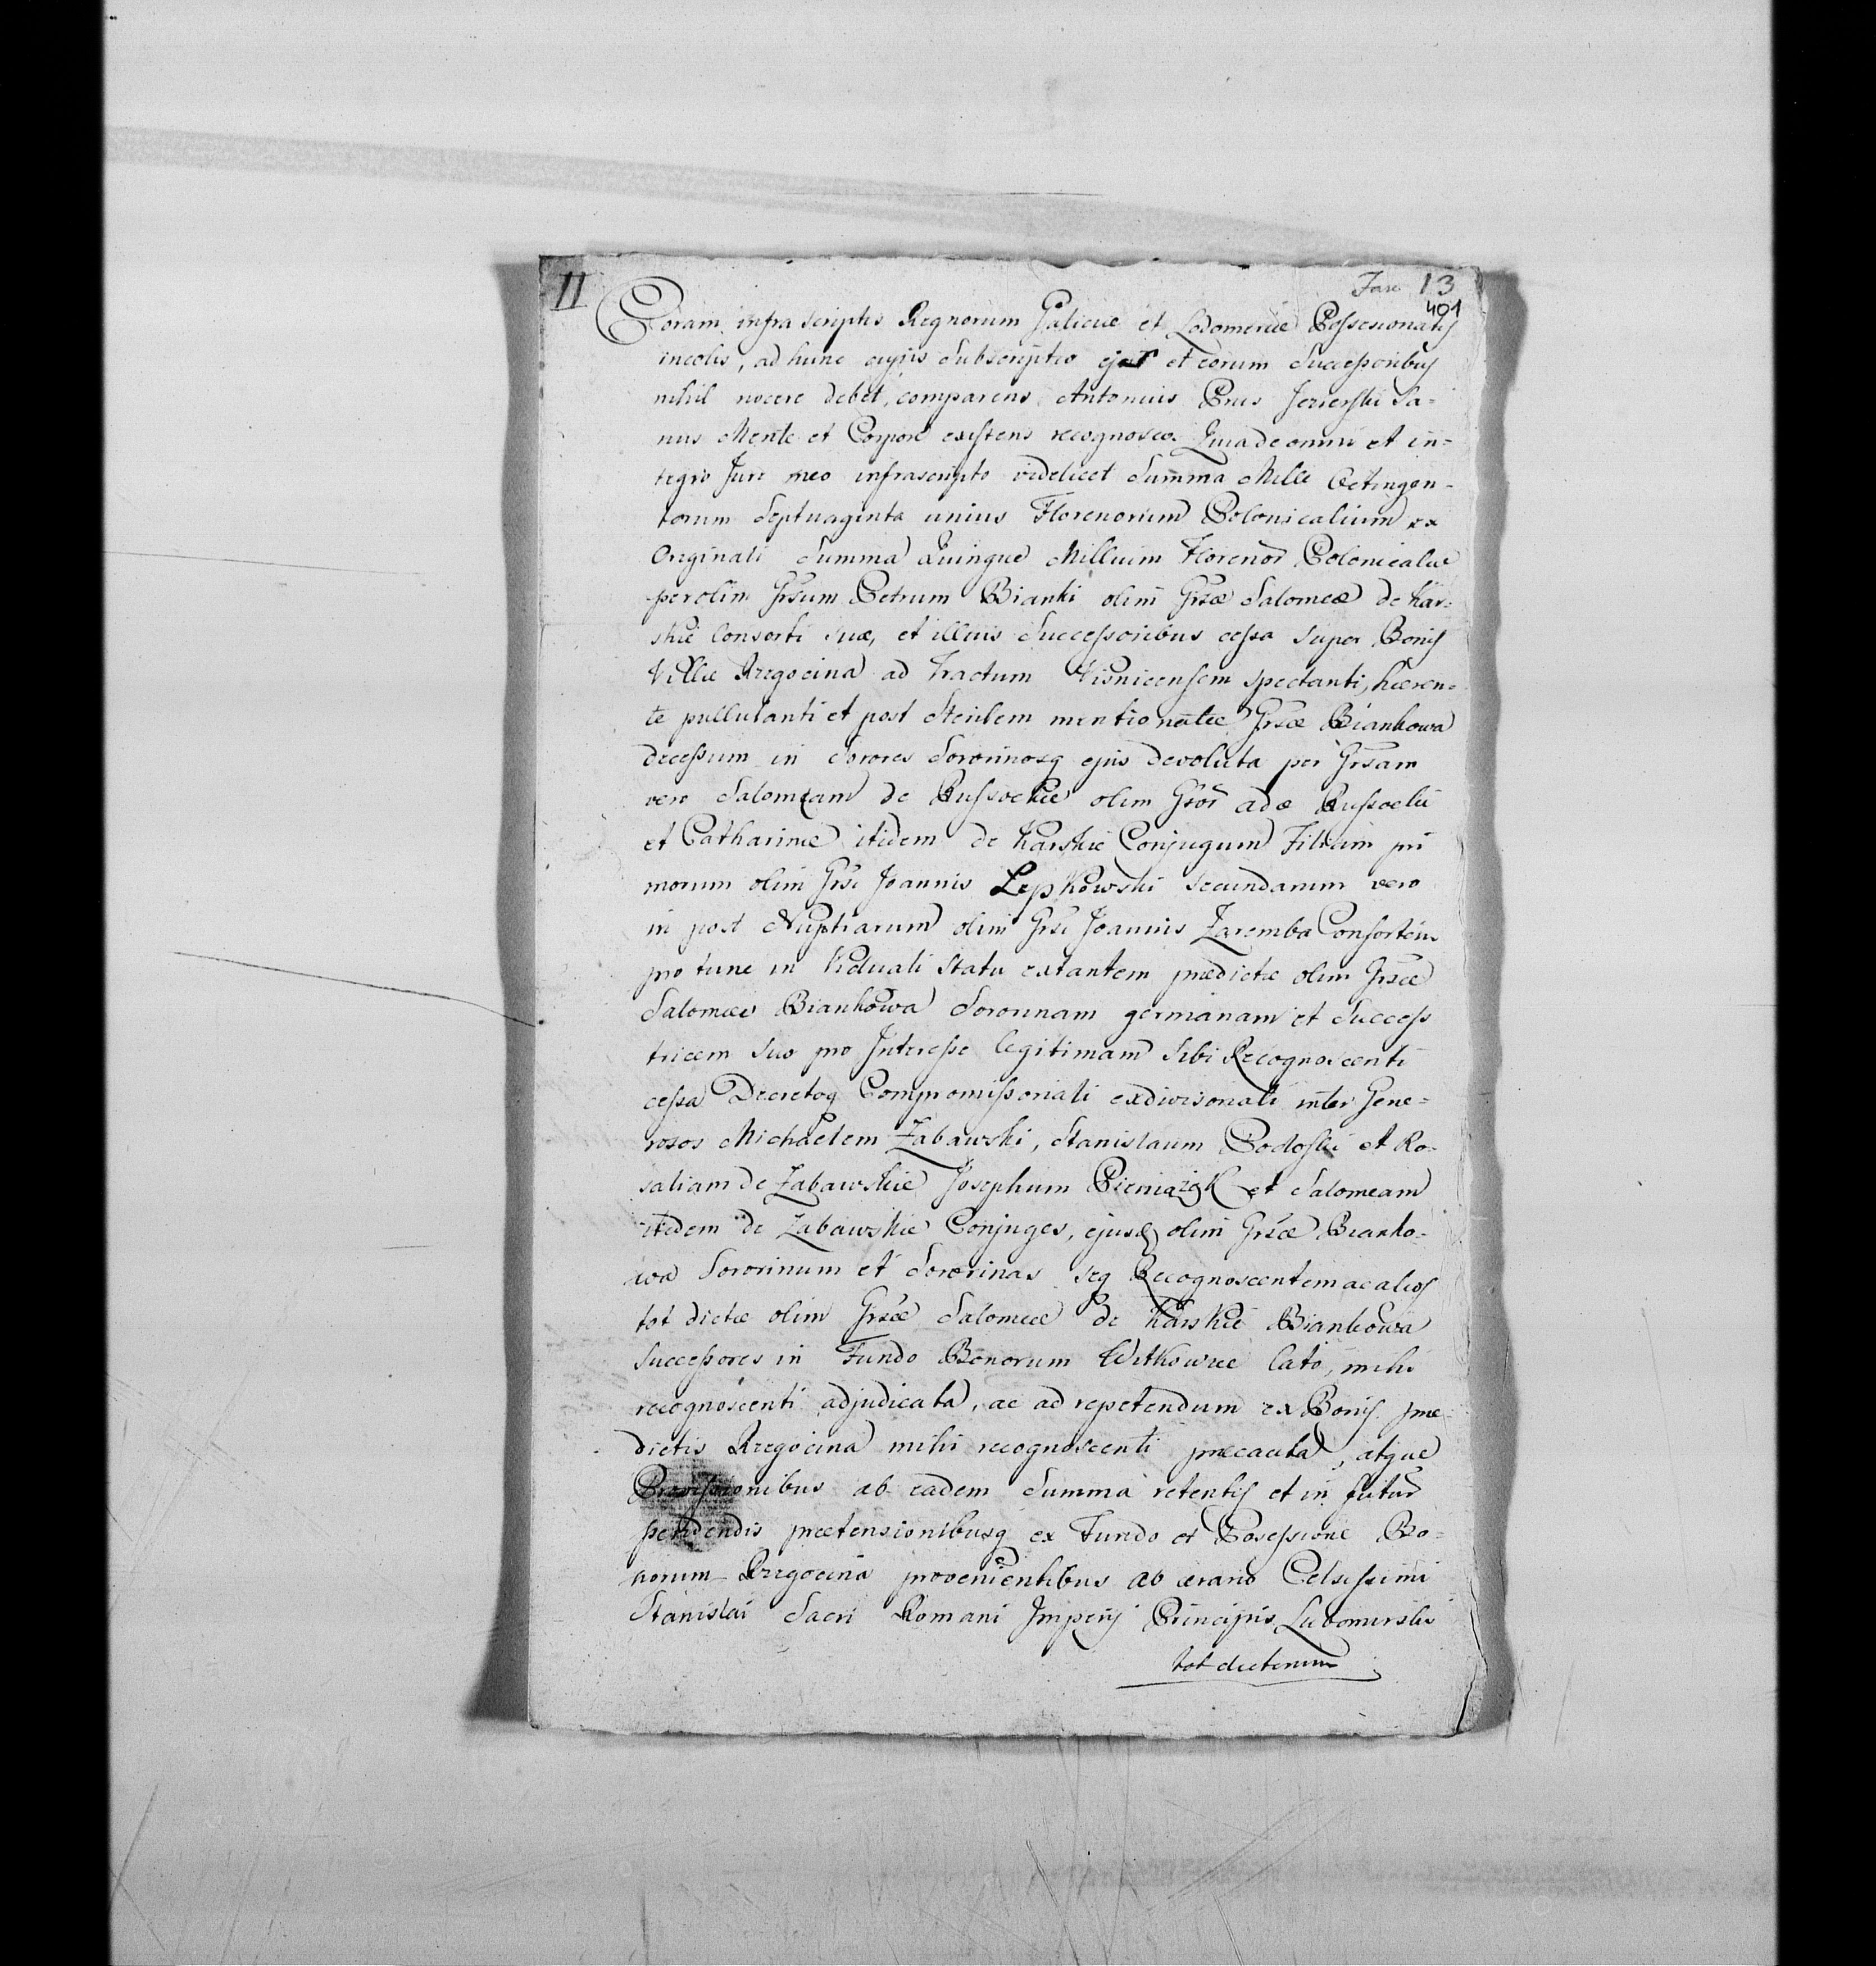 11
Fasc. 13
401
Coram infra scriptis Regnorum Galiciæ et Lodomeriæ Possesionatis
incolis, ad hunc cujus Subscriptio ejus et eorum Successoribus
nihil nocere debet, comparens Antonius Prus Jezierski Sa-
nus Mente et Corpore existens recognosco. Quia de omni et in-
tegro Jure meo infrascripto videlicet Summa Mille Octingen-
torum Septuaginta unius Florenorum Polonicalium ex
Originali Summa Quinque Millium Floreno? Polonicaliu
per olim Grsum Petrum Bianki olim Grsæ Salomeæ de Kar-
skie Consorti suæ, et illius Successoribus cessa super Bonis
Villæ Rzegocina ad Tractum Visnicensem spectanti, hæren-
te pullulanti et post Sterilem mentionatæ Grsæ Biankowa
decessum in Sorores Sororinosq ejus devoluta per Grsam
vero Salomeam de Russockie olim Gsor Adæ Russocki
et Catharinæ itidem de Karskie Conjugum Filiam pri
morum olim Grsi Joannis Lepkowski secundarum vero
in post Nuptiarum olim Grsi Joannis Zaremba Consortem
pro tunc in Viduali Statu extantem prædictæ olim Grsæ
Salomeæ Biankowa Sororinam germanam et Success
tricem suo pro Interesse legitimam sibi Recognoscenti
cessa Decretoq Compromissoriali exdivisionali inter Gene-
rosos Michaelem Zabawski, Stanislaum Podoski et Ro-
saliam de Zabawskie Josephum Pieniazek et Salomeam
itidem de Zabawskie Conjuges, ejusd olim Grsæ Bianko-
wa Sororinum et Sororinas seq Recognoscentem ac alios
tot dictæ olim Grsæ Salomeæ de Karskie Biankowa
Successores in Fundo Bonorum Witkowice lato, mihi
recognoscenti adjudicata, ac ad repetendum ex Bonis præ
dictis Rzegocina mihi recognoscenti præcauta, atque
Provisionibus ab eadem Summa retentis et in futur
pendendis prætensionibusq ex Fundo et Possessione Bo-
norum Rzegocina provenientibus ab ærario Celsissimi
Stanislai Sacri Romani Imperij Principis Lubomirski